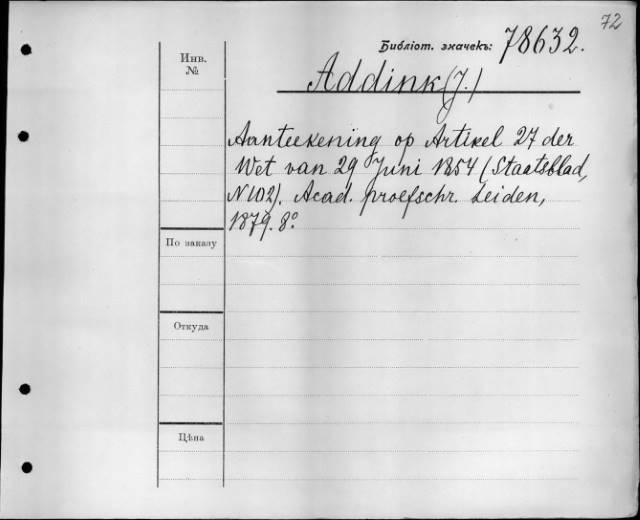 72
Библіот. значекъ: 78632.
Инв.
№
Addink (J.)
Aanteekening op Artikel 27 der
Wet van 29 Juni 1854 (Staatsblad,
N 102). Acad. proefschr. Leiden,
1879. 8°
По заказу
Откуда
Цѣна